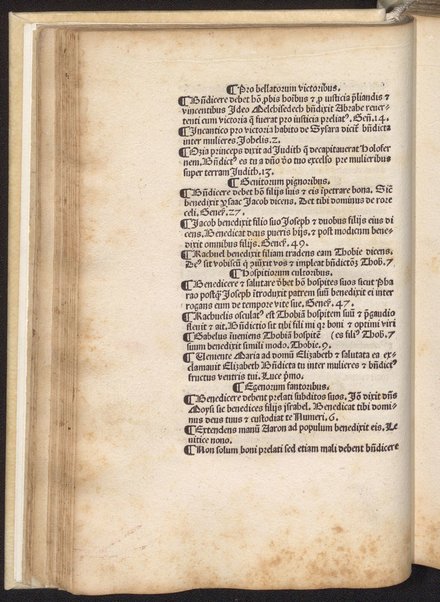 ¶Pro bellatorum victoribus.
¶Bñdicere debet hõ ꝓbis hoibus ⁊ ꝓ iusticia p̃liandis ⁊
vincentibus Ideo Melchisedech bñdixit Abrahe reuer-
tenti cum victoria q̃ fuerat pro iusticia preliatꝰ. Geñ.14.
¶In cantico pro victoria habito de Sysara dicit᷑ bñdicta
inter mulieres Jobelis.2.
¶Ozia princeps dixit ad Judith q̃ decapitauerat Holofer
nem. Bñdictꝰ es tu a dño ðo tuo excelso pre mulieribus
super terram Judith.13.
¶Genitorum pignoribus.
¶Bñdicere debet hõ filijs suis ⁊ eis ĩpetrare bona. Sic̃
benedixit ysaac Jacob dicens. Det tibi dominus de rore
celi. Geneẽ.27.
¶Jacob benedixit filio suo Joseph ⁊ duobus filijs eius di
cens. Benedicat deus pueris hijs, ⁊ post modcum bene-
dixit omnibus filijs. Geneẽ.49.
¶Rachuel benedixit filiam tradens eam Thobie dicens.
Deꝰ sit vobiscũ q̃ ꝯiũxit vos ⁊ impleat bñdictõȝ Thob.7
¶Hospitiorum cultoribus.
¶Benedicere ⁊ salutare ð́bet hõ hospites suos sicut pha
rao postq̃ Joseph ĩtroduxit patrem suũ benedixit ei inter
rogans eum de tempore vite sue. Geneẽ.47.
¶Rachuelis osculatꝰ est Thobiã hospitem suũ ⁊ p̃gaudio
fleuit ⁊ ait. Bñdictio sit tibi fili mi qꝛ boni ⁊ optimi viri
¶Gabelus ĩueniens Thobiã hospitẽ (es filiꝰ Thob.7
suum benedixit simili modo. Thobie.9.
¶Veniente Maria ad domũ Elizabeth ⁊ salutata ea ex-
clamauit Elizabeth Bñdicta tu inter mulieres ⁊ bñdictꝰ
fructus ventris tui. Luce p̃mo.
¶Egenorum fautoribus.
¶Benedicere debent prelati subditos suos. Jõ dixit dñs
Moysi sic benedices filijs jsrahel. Benedicat tibi domi-
nus deus tuus ⁊ custodiat te Numeri.6.
¶Extendens manũ Aaron ad populum benedixit eis. Le
uitice nono.
¶Non solum boni prelati sed etiam mali debent bñdicere